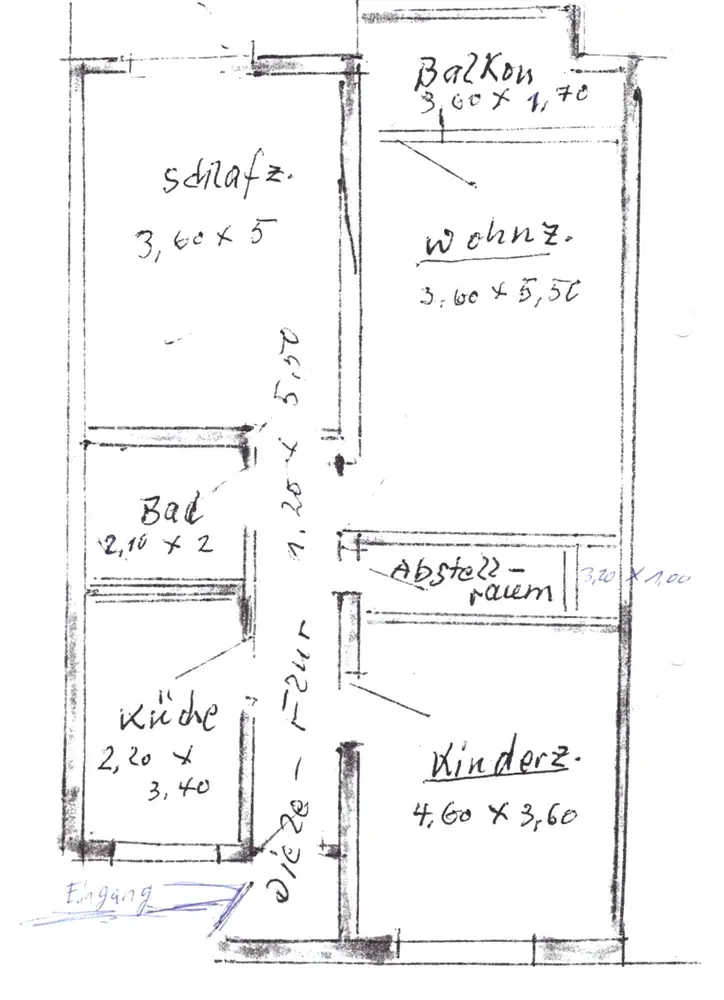 Balkon
3,60 x 1,70
Schlafz.
3,60 x 5
Wohnz.
3,60 x 5,50
Bad
2,10 x 2
Abstell-
raum
3,20 x 1,00
Diele - Flur 1.20 x 5,50
Küche
2,20 x
3,40
Kinderz.
4,60 x 3,60
Eingang